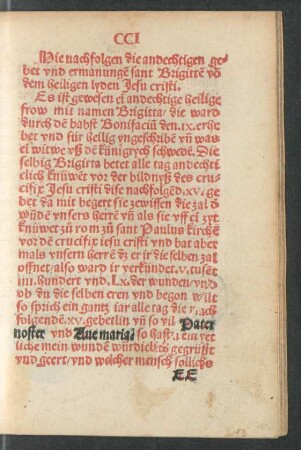 CCI
Hie nachfolgen die andechtigen ge-
bet vnd ermanungē sant Brigittē vō
dem heiligen lyden Jesu cristi.
Es ist gewesen eī andechtige heilige
frow mit namen Brigitta/ die ward
durch dē babst Bonifaciū den.ix.erhe
bet vnd für hellig yngeschribē vn̄ was
ei witwe vß dē künigrych schwedē. Die
selbig Brigitta betet alle tag andecht
lich knüwēt vor der bildnyß des cru-
cifix Jesu cristi dise nachfolgēd.xv.ge
bet da mit begert sie zewissen die zal d̓
wūdē vnsers herrē vn̄ als sie vff eī zyt
knüwet zū rom zū sant Paulus kirchē
vor dē crucifix iesu cristi vnd bat aber
mals vnsern herrē dz er ir die selben zal
offnet/also ward ir verkündet.v.tuset
iiij.hundert vnd.Lx.der wunden/vnd
ob du die selben eren vnd began wilt
so sprich ein gantz iar alle tag die nach
folgendē.xv.gebetlin vn̄ so vil Pater
noster vnd Aue maria/ so hast ein yet
liche mein wundē würdicliche gegrüsst
vnd geert/ vnd welcher mensch solliche
EE